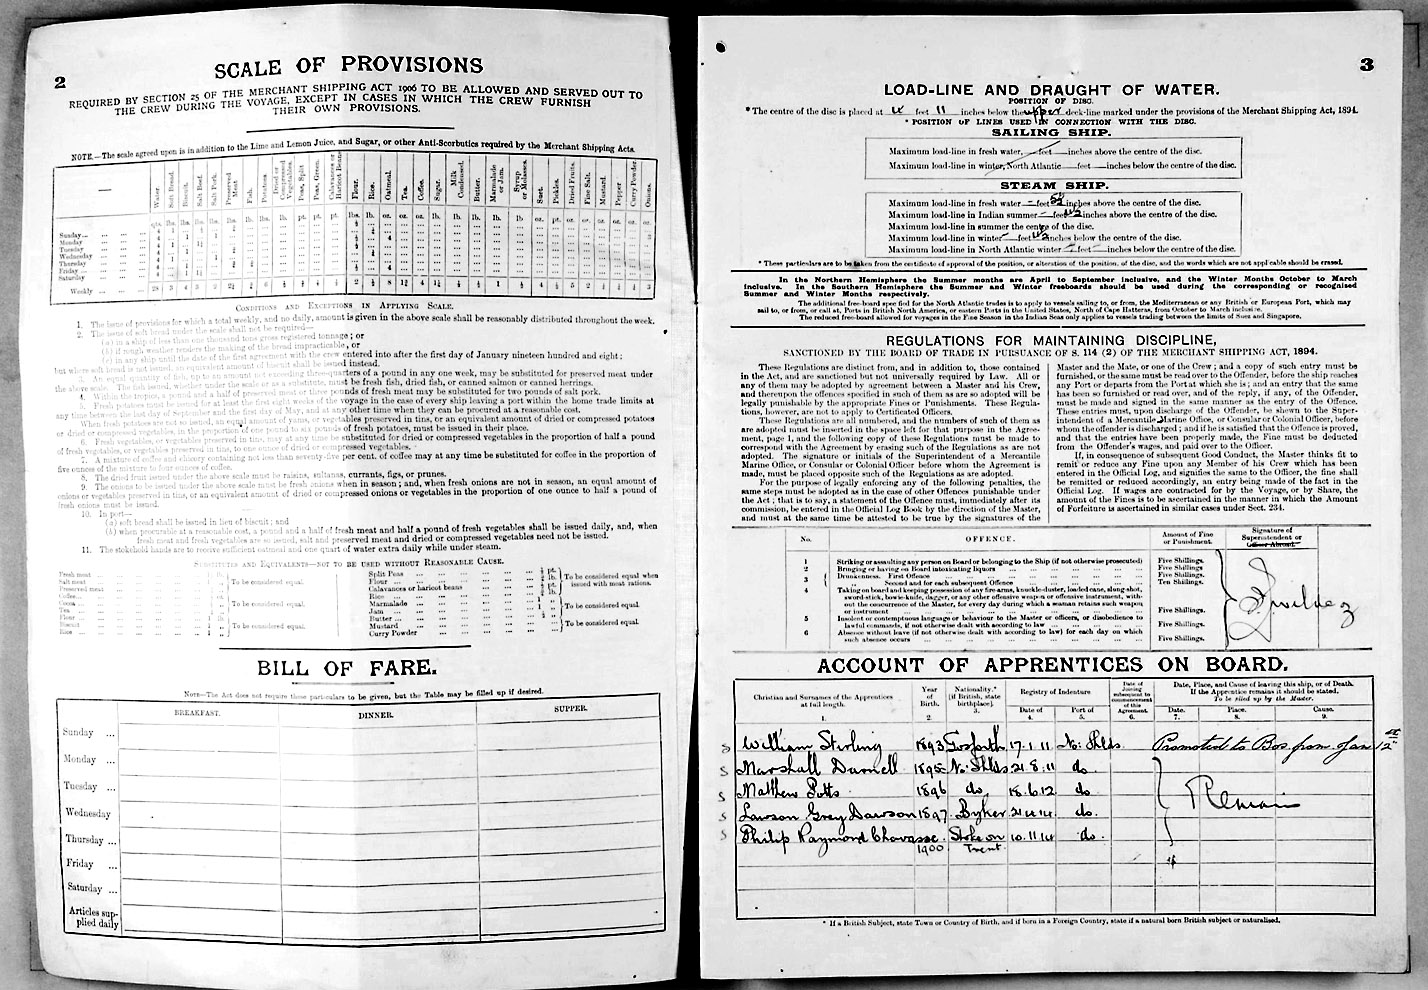 2
SCALE OF PROVISIONS
REQUIRED BY SECTION 25 OF THE MERCHANT SHIPPING ACT 1906 TO BE ALLOWED AND SERVED OUT TO
THE CREW DURING THE VOYAGE, EXCEPT IN CASES IN WHICH THE CREW FURNISH
THEIR OWN PROVISIONS.
NOTE.—The scale agreed upon is in addition to the Lime and Lemon Juice, and Sugar, or other Anti-Scorbutics required by the Merchant Shipping Acts.
Water. Soft Bread. Biscuit. Salt Beef. Salt Pork. Preserved Meat. Fish. Potatoes. Dried or Compressed Vegetables. Peas, Split Peas, Green. Calavances or Haricot Beans Flour. Rice. Oatmeal. Tea. Coffee. Sugar. Milk Condensed. Butter. Marmalade or Jam. Syrup or Molasses. Suet. Pickles. Dried Fruits. Fine Salt. Mustard. Pepper Curry Powder. Onions.
Sunday...
Monday
Tuesday
Wednesday
Thursday
Friday
Saturday
Weekly
CONDITIONS AND EXCEPTIONS IN APPLYING SCALE.
1. The issue of provisions for which a total weekly, and no daily, amount is given in the above scale shall be reasonably distributed throughout the week.
2. The issue of soft bread under the above scale shall not be required—
(a) in a ship of less than one thousand tons gross registered tonnage; or
(b) if rough weather renders the making of the bread impracticable, or
(c) in any ship until the date of the first agreement with the crew entered into after the first day of January nineteen hundred and eight;
but where soft bread is not issued, an equivalent amount of biscuit shall be issued instead.
3. An equal quantity of fish, up to an amount not exceeding three-quarters of a pound in any one week, may be substituted for preserved meat under
the above scale. The fish issued, whether under the scale or as a substitute, must be fresh fish, dried fish, or canned salmon or canned herrings.
4. Within the tropics, a pound and a half of preserved meat or three pounds of fresh meat may be substituted for two pounds of salt pork.
5. Fresh potatoes must be issued for at least the first eight weeks of the voyage in the case of every ship leaving a port within the home trade limits at
any time between the last day of September and the first day of May, and at any other time when they can be procured at a reasonable cost.
When fresh potatoes are not so issued, an equal amount of yams, or vegetables preserved in tins, or an equivalent amount of dried or compressed potatoes
or dried or compressed vegetables, in the proportion of one pound to six pounds of fresh potatoes, must be issued in their place.
6. Fresh vegetables, or vegetables preserved in tins, may at any time be substituted for dried or compressed vegetables in the proportion of half a pound
of fresh vegetables, or vegetables preserved in tins, to one ounce of dried or compressed vegetables.
7. A mixture of coffee and chicory containing not less than seventy-five per cent. of coffee may at any time be substituted for coffee in the proportion of
five ounces of the mixture to four ounces of coffee.
8. The dried fruit issued under the above scale must be raisins, sultanas, currants, figs, or prunes.
9. The onions to be issued under the above scale must be fresh onions when in season; and, when fresh onions are not in season, an equal amount of
onions or vegetables preserved in tins, or an equivalent amount of dried or compressed onions or vegetables in the proportion of one ounce to half a pound of
fresh onions must be issued.
10. In port—
(a) soft bread shall be issued in lieu of biscuit; and
(b) when procurable at a reasonable cost, a pound and a half of fresh meat and half a pound of fresh vegetables shall be issued daily, and, when
fresh meat and fresh vegetables are so issued, salt and preserved meat and dried or compressed vegetables need not be issued.
11. The stokehold hands are to receive sufficient oatmeal and one quart of water extra daily while under steam.
SUBSTITUTES AND EQUIVALENTS—NOT TO BE USED WITHOUT REASONABLE CAUSE.
Fresh meat
Salt meat
Preserved meat
To be considered equal.
Coffee
Cocoa
Tea
To be considered equal.
Flour
Biscuit
Rice
To be considered equal.
Split Peas
Flour
Calavances or haricot beans
Rice
To be considered equal when issued with meat rations.
Marmalade
Jam
Butter
To be considered equal.
Mustard
Curry Powder
To be considered equal.
BILL OF FARE.
NOTE—The Act does not require these particulars to be given, but the Table may be filled up if desired.
BREAKFAST. DINNER. SUPPER.
Sunday ...
Monday ...
Tuesday ...
Wednesday
Thursday ...
Friday ...
Saturday ...
Articles supplied daily
3
LOAD-LINE AND DRAUGHT OF WATER.
POSITION OF DISC.
* The centre of the disc is placed at feet 11 inches below the upper deck-line marked under the provisions of the Merchant Shipping Act, 1894.
* POSITION OF LINES USED IN CONNECTION WITH THE DISC.
SAILING SHIP.
Maximum load-line in fresh water, — feet — inches above the centre of the disc.
Maximum load-line in winter, North Atlantic — feet — inches below the centre of the disc.
STEAM SHIP.
Maximum load-line in fresh water — feet inches above the centre of the disc.
Maximum load-line in Indian summer — feet inches above the centre of the disc.
Maximum load-line in summer the centre of the disc.
Maximum load-line in winter — feet inches below the centre of the disc.
Maximum load-line in North Atlantic winter — feet — inches below the centre of the disc.
* These particulars are to be taken from the certificate of approval of the position, or alteration of the position, of the disc, and the words which are not applicable should be erased.
In the Northern Hemisphere the Summer months are April to September inclusive, and the Winter Months October to March
inclusive. In the Southern Hemisphere the Summer and Winter freeboards should be used during the corresponding or recognised
Summer and Winter Months respectively.
The additional free-board specified for the North Atlantic trades is to apply to vessels sailing to, or from, the Mediterranean or any British or European Port, which may
sail to, or from, or call at, Ports in British North America, or eastern Ports in the United States, North of Cape Hatteras, from October to March inclusive.
The reduced free-board allowed for voyages in the Fine Season in the Indian Seas only applies to vessels trading between the limits of Suez and Singapore.
REGULATIONS FOR MAINTAINING DISCIPLINE,
SANCTIONED BY THE BOARD OF TRADE IN PURSUANCE OF S. 114 (2) OF THE MERCHANT SHIPPING ACT, 1894.
These Regulations are distinct from, and in addition to, those contained
in the Act, and are sanctioned but not universally required by Law. All or
any of them may be adopted by agreement between a Master and his Crew,
and thereupon the offences specified in such of them as are so adopted will be
legally punishable by the appropriate Fines or Punishments. These Regulations, however, are not to apply to Certificated Officers.
These Regulations are all numbered, and the numbers of such of them as
are adopted must be inserted in the space left for that purpose in the Agreement, page 1, and the following copy of these Regulations must be made to
correspond with the Agreement by erasing such of the Regulations as are not
adopted. The signature or initials of the Superintendent of a Mercantile
Marine Office, or Consular or Colonial Officer before whom the Agreement is
made, must be placed opposite such of the Regulations as are adopted.
For the purpose of legally enforcing any of the following penalties, the
same steps must be adopted as in the case of other Offences punishable under
the Act; that is to say, a statement of the Offence must, immediately after its
commission, be entered in the Official Log Book by the direction of the Master,
and must at the same time be attested to be true by the signatures of the
Master and the Mate, or one of the Crew; and a copy of such entry must be
furnished, or the same must be read over to the Offender, before the ship reaches
any Port or departs from the Port at which she is; and an entry that the same
has been so furnished or read over, and of the reply, if any, of the Offender,
must be made and signed in the same manner as the entry of the Offence.
These entries must, upon discharge of the Offender, be shown to the Superintendent of a Mercantile Marine Office, or Consular or Colonial Officer, before
whom the offender is discharged; and if he is satisfied that the Offence is proved,
and that the entries have been properly made, the Fine must be deducted
from the Offender's wages, and paid over to the Officer.
If, in consequence of subsequent Good Conduct, the Master thinks fit to
remit or reduce any Fine upon any Member of his Crew which has been
entered in the Official Log, and signifies the same to the Officer, the fine shall
be remitted or reduced accordingly, an entry being made of the fact in the
Official Log. If wages are contracted for by the Voyage, or by Share, the
Amount of the Fines is to be ascertained in the manner in which the Amount
of Forfeiture is ascertained in similar cases under Sect. 234.
No. OFFENCE. Amount of Fine or Punishment. Signature of Superintendent or Officer Abroad.
1 Striking or assaulting any person on Board or belonging to the Ship (if not otherwise prosecuted) Five Shillings.
2 Bringing or having on Board intoxicating liquors Five Shillings.
3 Drunkenness. First Offence Five Shillings.
„ Second and for each subsequent Offence Ten Shillings.
4 Taking on board and keeping possession of any fire-arms, knuckle-duster, loaded cane, slung-shot,
sword-stick, bowie-knife, dagger, or any other offensive weapon or offensive instrument, without the concurrence of the Master, for every day during which a seaman retains such weapon
or instrument Five Shillings.
5 Insolent or contemptuous language or behaviour to the Master or officers, or disobedience to
lawful commands, if not otherwise dealt with according to law Five Shillings.
6 Absence without leave (if not otherwise dealt with according to law) for each day on which
such absence occurs Five Shillings.
ACCOUNT OF APPRENTICES ON BOARD.
Christian and Surnames of the Apprentices at full length. Year of Birth. Nationality.* (if British, state birthplace). Registry of Indenture Date of Port of Date of Joining subsequent to commencement of this Agreement. Date, Place, and Cause of leaving this ship, or of Death. If the Apprentice remains it should be stated. To be filled up by the Master. Date. Place. Cause.
1. 2. 3. 4. 5. 6. 7. 8. 9.
S William Stirling 1893 Gosforth 17.1.11 No: Shlds. Promoted to Bos from Jan 12th
S Marshall Darnell 1895 No: Shlds 21.8.11 do.
S Matthew Potts 1896 do. 18.6.12 do. Remain
S Lawson Grey Dawson 1897 Byker 21.4.14 do.
S Philip Raymond Chavasse. 1900 Stoke on Trent 10.11.14 do.
* If a British Subject, state Town or Country of Birth, and if born in a Foreign Country, state if a natural born British subject or naturalised.